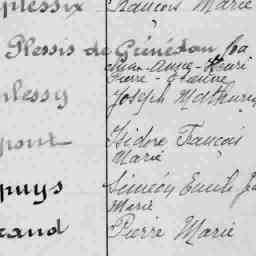 plessix François Marie
Plessis de Grénédan
Jean-Anne-Henri
Pierre-Etienne
plessy Joseph Mathurin
pont Isidore François
Marie
puys Siméon Emile
Marie
rand Pierre Marie